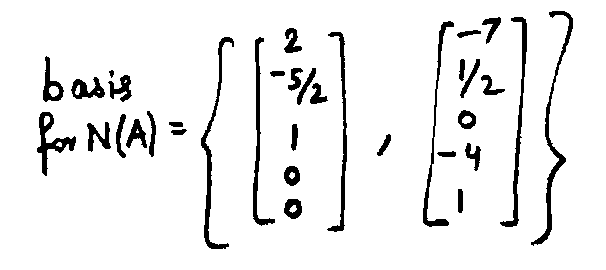 basis
for N(A) = { [2, -5/2, 1, 0, 0] , [-7, 1/2, 0, -4, 1] }